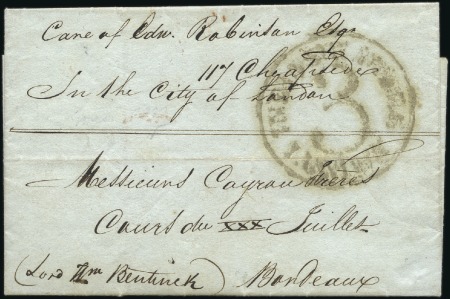 Care of Edw. Robinson Esqr
117 Cheapside
In the City of London
3
Messieurs Cayrou Frères
Cours du XXX Juillet
(Lord Wm Bentinck) Bordeaux